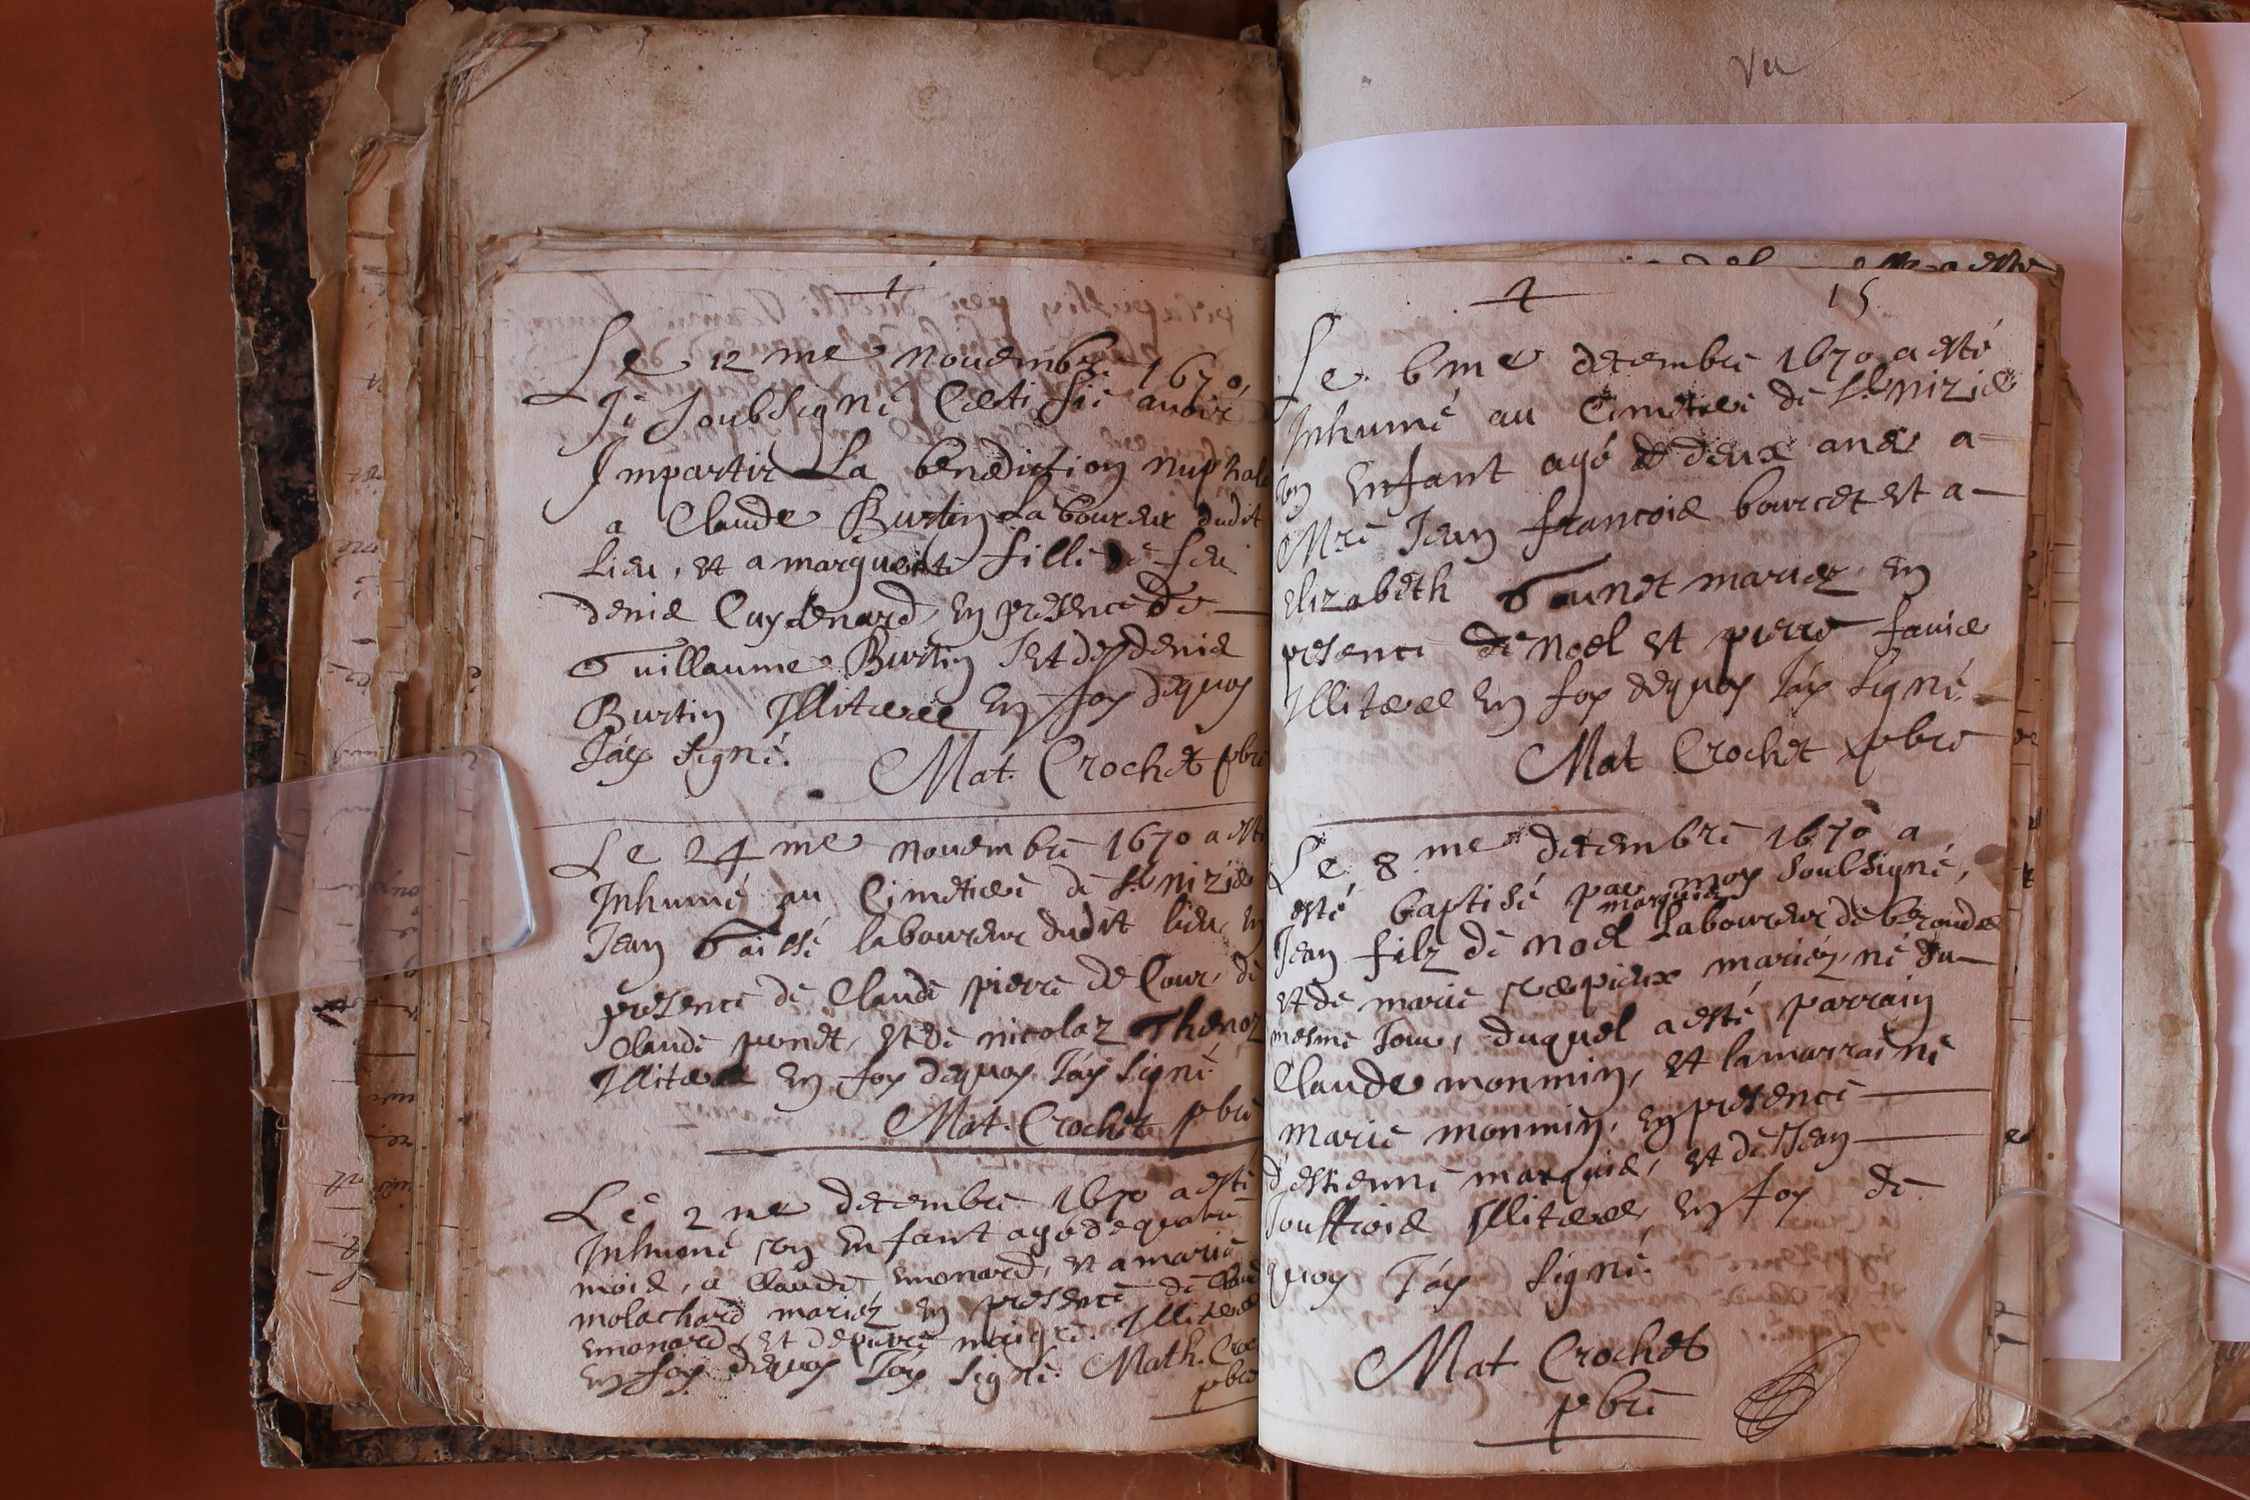 Le 12 me novembre 1670,
Je soubsigné Certifie avoir
Impartir La benediction nuphale
a Claude Burtin Laboureur dudit
lieu, et a marguerite fille de feu
denis Cuysenard, en presence de
Guillaume Burtin et de denis
Burtin Illiteres En foy dequoy
J'ay signé. Mat. Crochet pbre
Le 24 me novembre 1670 a esté
Inhumé au Cimetiere de St. nizie
Jean Gaissé laboureur dudit lieu, en
presence de Claude pierre de Cour, de
Claude penet, et de nicolaz Thenoz
Illiteres En foy dequoy J'ay signé
Mat. Crochet pbre
Le 2 me decembre 1670 a esté
Inhumé un Enfant agé de quatre
mois, a Claude monard, et a marie
molachard mariéz en presence de Claude
monard, et de pierre Illiteres
En foy dequoy J'ay signé. Math. Croc
pbre
Vu
15
Le 6 me decembre 1670 a esté
Inhumé au Cimetiere de St. nizie
un Enfant agé de deux ans a
Mre Jean francois bourcet et a
Elizabeth Gaunet mariez, en
presence de Noel et pierre favie
Illiteres En foy dequoy J'ay signé
Mat Crochet pbre
Le 8 me decembre 1670 a
esté baptisé par moy soubsigné,
marquis
Jean filz de Noel Laboureur de
et de marie mariéz, né du
mesme Jour, duquel a esté parrain
Claude monmin, et la marraine
Marie monmin, en presence
d'estienne marquis, et de Jean
Jouffrois Illiteres, En foy de
quoy J'ay signé.
Mat Crochet
pbre